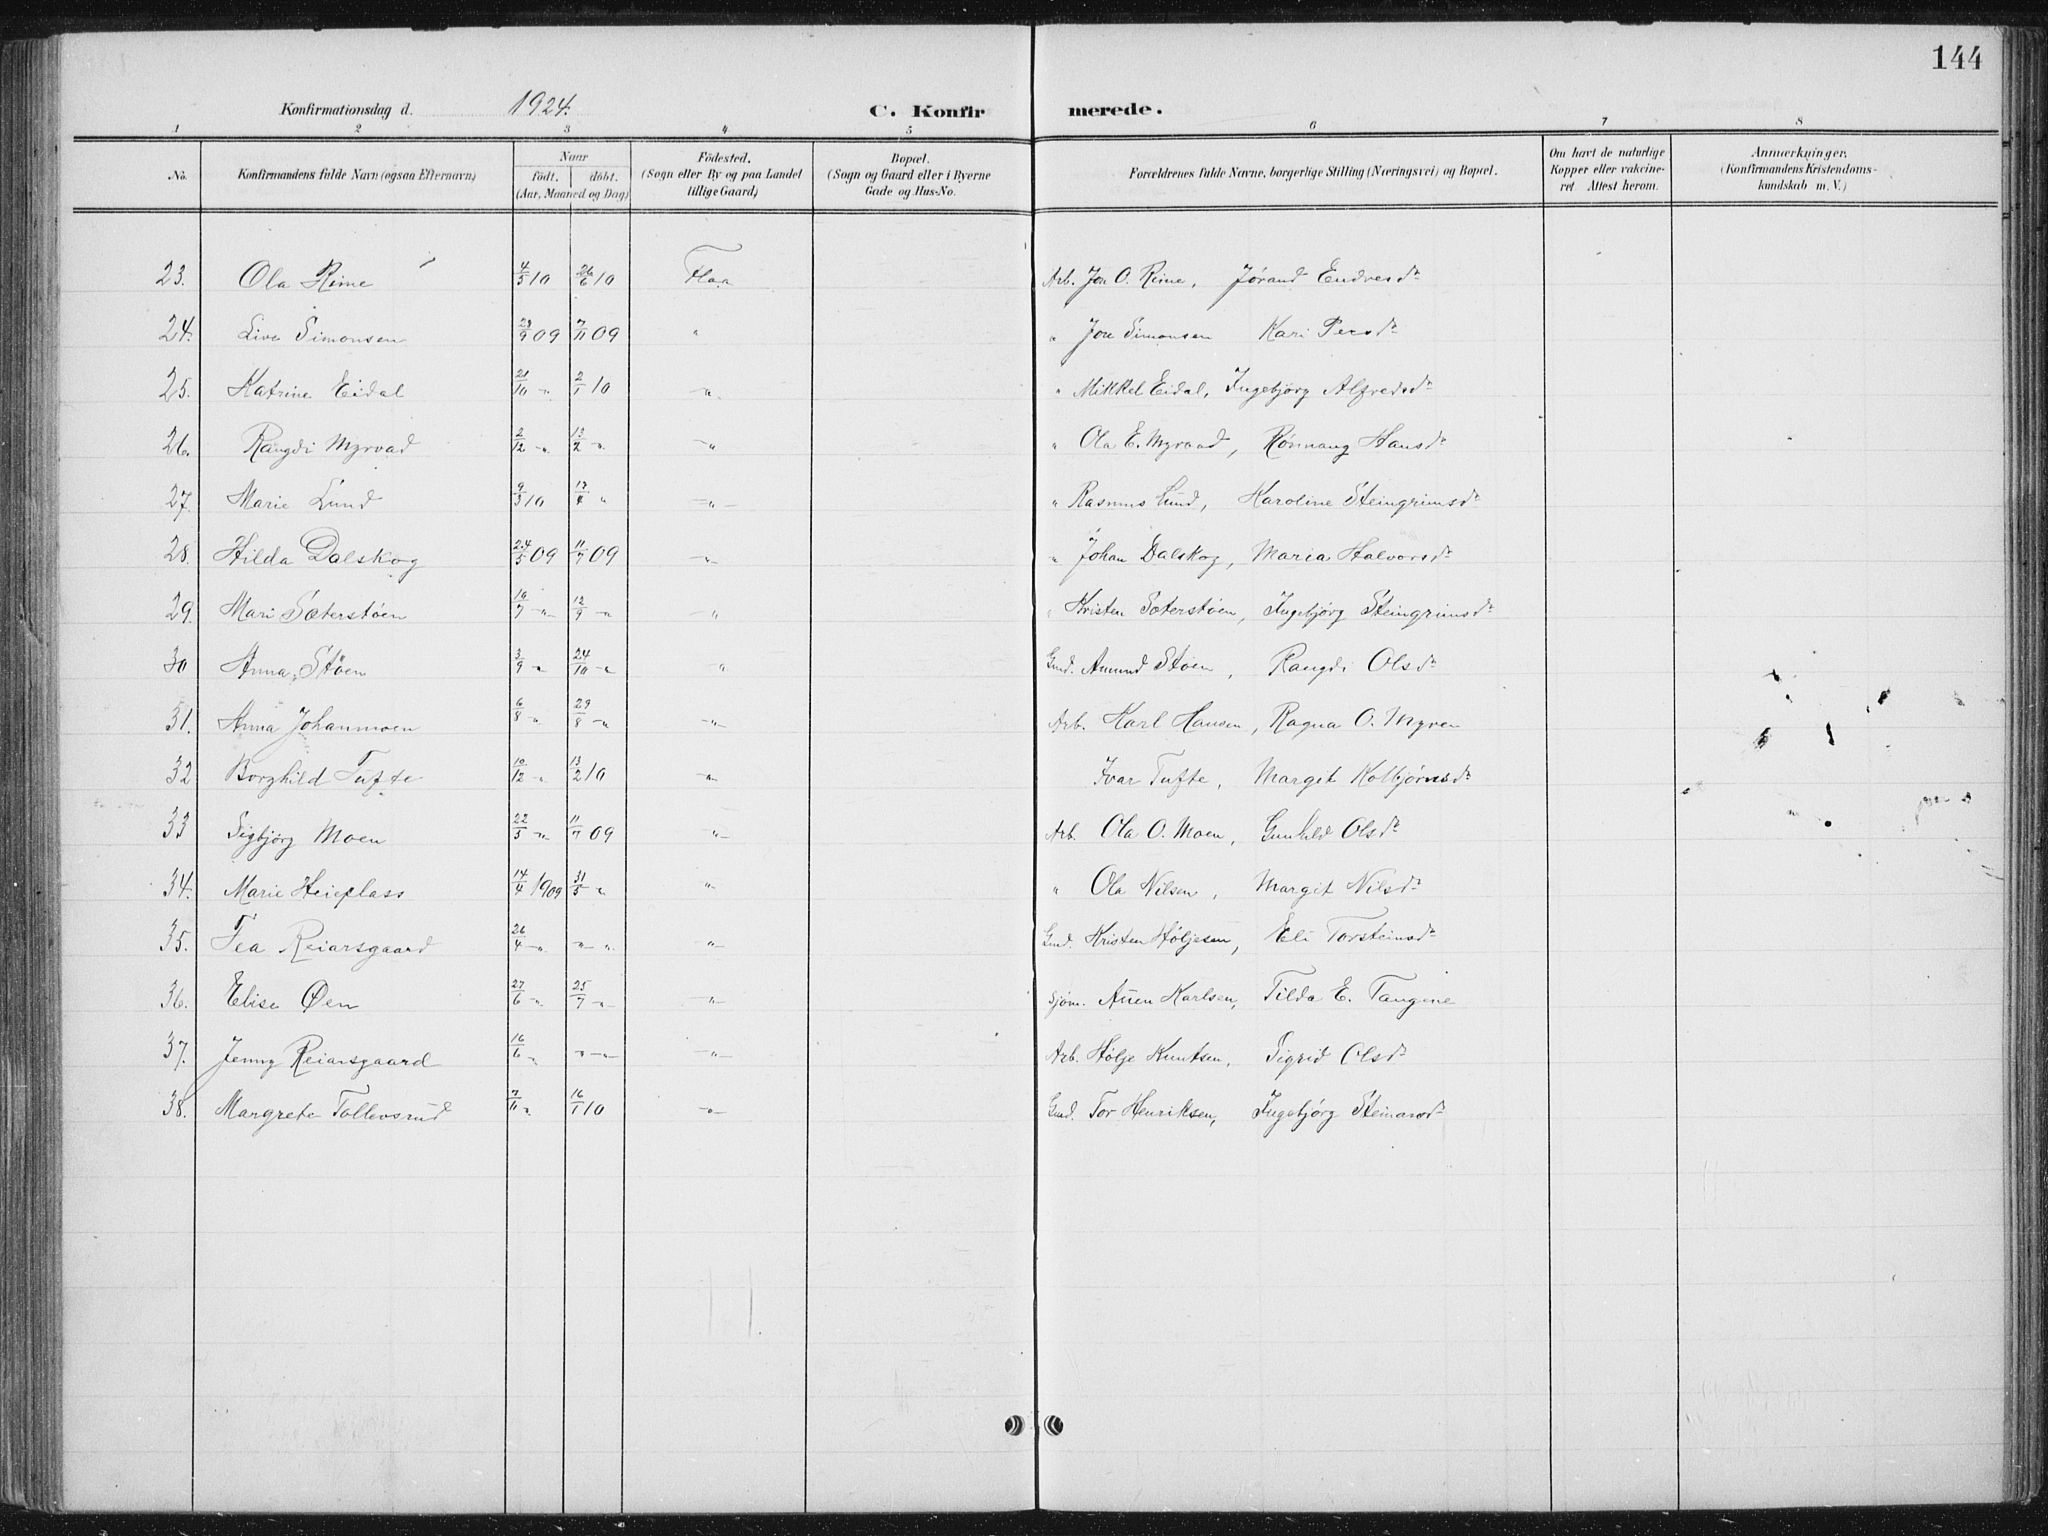 144
Konfirmationsdag d. 1924. C. Konfirmerede.
1 2 3 4 5 6 7 8
No. Konfirmandens fulde Navn (ogsaa Efternavn) Naar födt. döbt. (Aar, Maaned og Dag) Födested. (Sogn eller By og paa Landet tillige Gaard) Bopæl. (Sogn og Gaard eller i Byerne Gade og Hus-No. Forældrenes fulde Navne, borgerlige Stilling (Næringsvei) og Bopæl. Om havt de naturlige Kopper eller vakcineret. Attest herom. Anmærkninger. (Konfirmandens Kristendomskundskab m. V.)
23. Ola Rime 4/5 10 26/6 10 Flaa Arb. Jon O. Rime, Jørand Endresdr
24. Live Simonsen 28/9 09 7/11 09 " " Jon Simonsen Kari Persdr
25. Katrine Eidal 21/10 -"- 2/1 10 -"- " Mikkel Eidal, Ingebjørg Alfredsdr
26. Rangdi Myrvad 2/12 -"- 13/2 -"- -"- " Ola E. Myrvad, Rønnaug Hansdr
27. Marie Lund 9/3 10 17/4 " -"- " Rasmus Lund, Karoline Steingrimsdr
28. Hilda Dalskog 24/5 09 11/7 09 -"- " Johan Dalskog, Maria Halvorsdr
29. Mari Sæterstøen 10/7 -"- 12/9 -"- -"- " Kristen Sæterstøen, Ingebjørg Steingrimsdr
30 Anna Støen 3/9 -"- 24/10 -"- " Gmd. Amund Støen, Rangdi Olsdr
31. Anna Johanmoen 6/8 -"- 29/8 -"- -"- Arb. Karl Hansen, Ragna O. Myren
32 Borghild Tufte 10/12 -"- 13/2 10 -"- Ivar Tufte, Margit Kolbjørnsdr
33 Sigbjørg Moen 22/5 -"- 11/7 09 -"- Arb. Ola O. Moen, Gunhild Olsdr
34. Marie Heieplass 14/4 1909 31/5 -"- -"- " Ola Nilsen, Margit Nilsdr
35. Tea Reiarsgaard 26/4 -"- -"- " -"- Gmd. Kristen Høljesen, Eli Torsteinsdr
36. Elise Øen 27/6 -"- 25/7 -"- -"- Sjøm. Auen Karlsen, Tilda E. Tangene
37. Jenny Reiarsgaard 16/6 -"- -"- -"- -"- Arb. Hølje Knutsen, Sigrid Olsdr
38. Margrete Tollevsrud 7/11 -"- 16/1 10 -"- Gmd. Tor Henriksen, Ingebjørg Steinarsdr